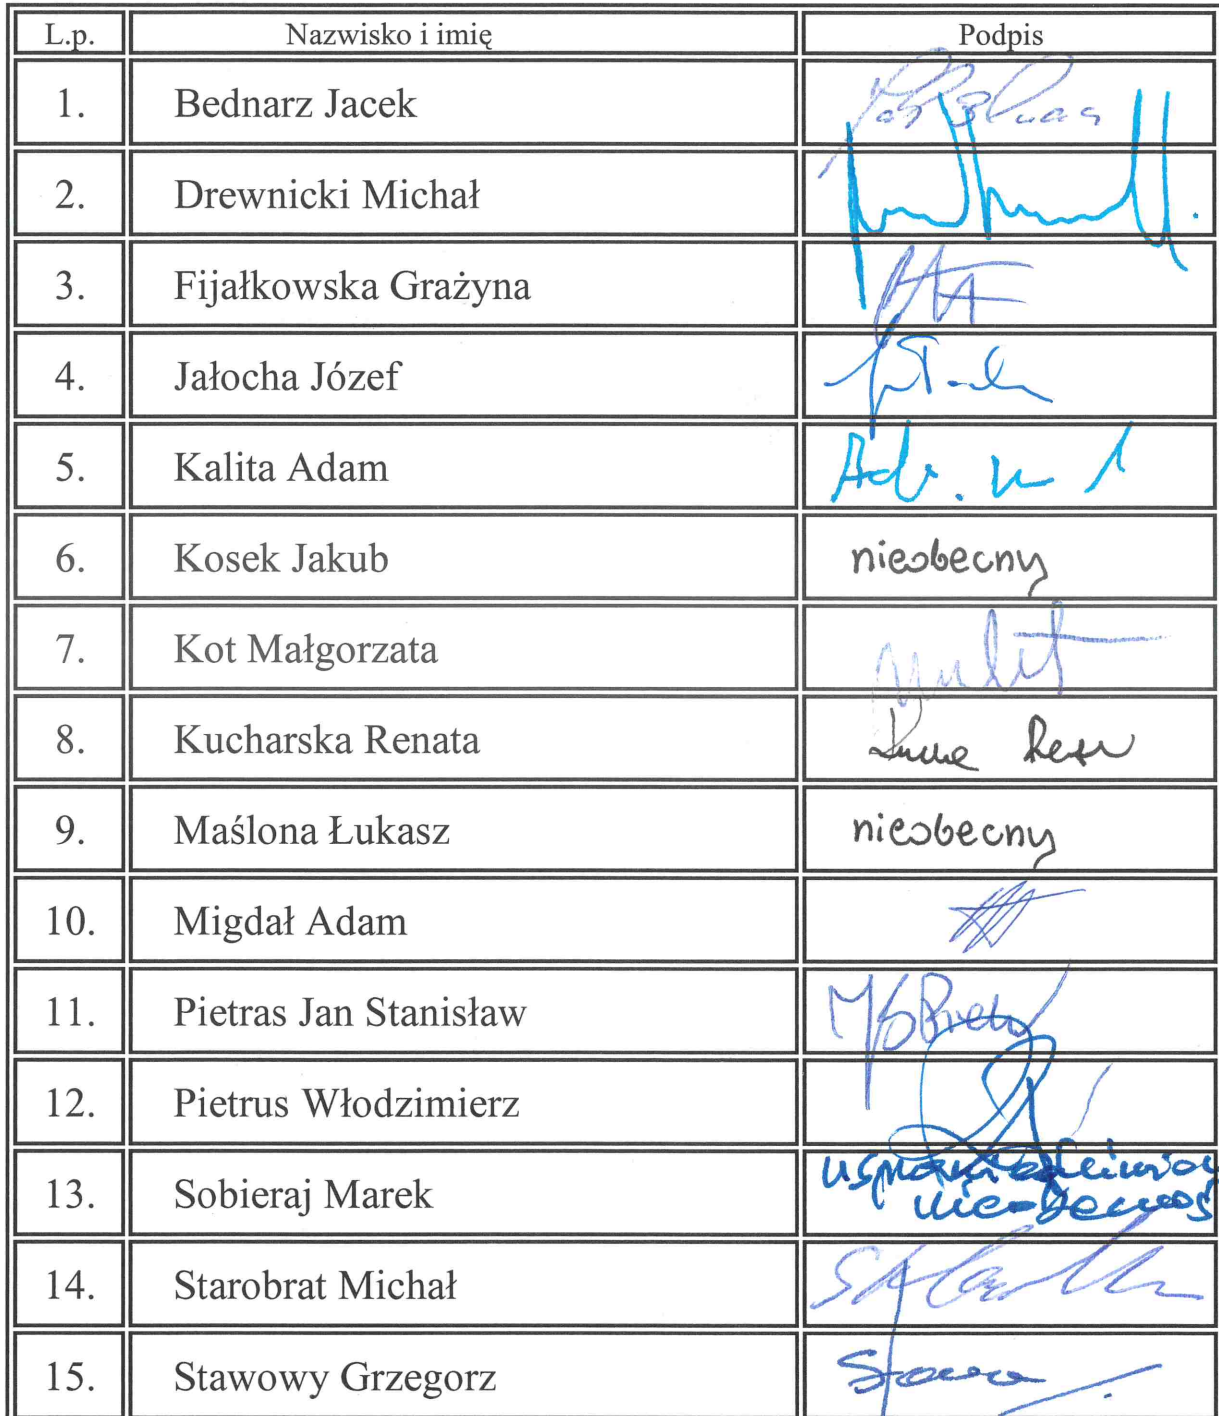 L.p. Nazwisko i imię Podpis
1. Bednarz Jacek
2. Drewnicki Michał
3. Fijałkowska Grażyna
4. Jałocha Józef
5. Kalita Adam
6. Kosek Jakub nieobecny
7. Kot Małgorzata
8. Kucharska Renata
9. Maślona Łukasz nieobecny
10. Migdał Adam
11. Pietras Jan Stanisław
12. Pietrus Włodzimierz
13. Sobieraj Marek
14. Starobrat Michał
15. Stawowy Grzegorz